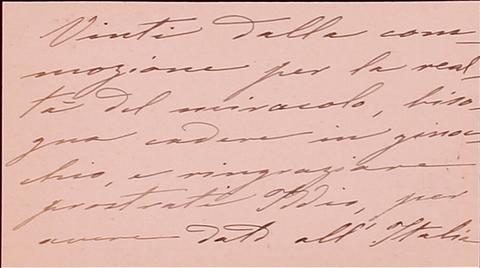 Vinti dalla com-
mozione per la real-
tà del miracolo, biso-
gna cadere in ginoc-
chio, e ringraziare
prostrati Iddio, per
avere dato all'Italia